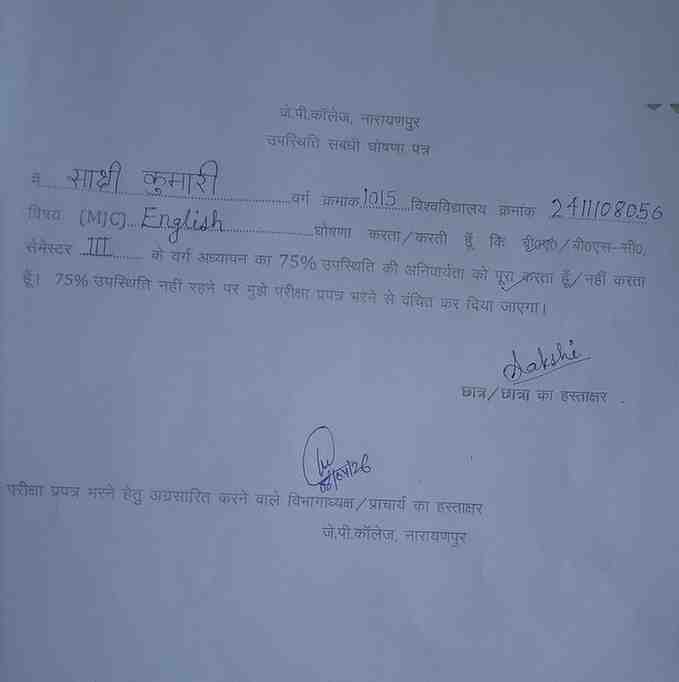 जे.पी.कॉलेज, नारायणपुर
उपस्थिति संबंधी घोषणा पत्र
मैं साक्षी कुमारी वर्ग क्रमांक 1015 विश्वविद्यालय क्रमांक 2411108056
विषय (MJC) English घोषणा करता/करती हूँ कि बी०ए०/बी०एस-सी०,
सेमेस्टर III के वर्ग अध्यापन का 75% उपस्थिति की अनिवार्यता को पूरा करता हूँ/नहीं करता
हूँ। 75% उपस्थिति नहीं रहने पर मुझे परीक्षा प्रपत्र भरने से वंचित कर दिया जाएगा।
Sakshi
छात्र/छात्रा का हस्ताक्षर
परीक्षा प्रपत्र भरने हेतु अग्रसारित करने वाले विभागाध्यक्ष/प्राचार्य का हस्ताक्षर
जे.पी.कॉलेज, नारायणपुर